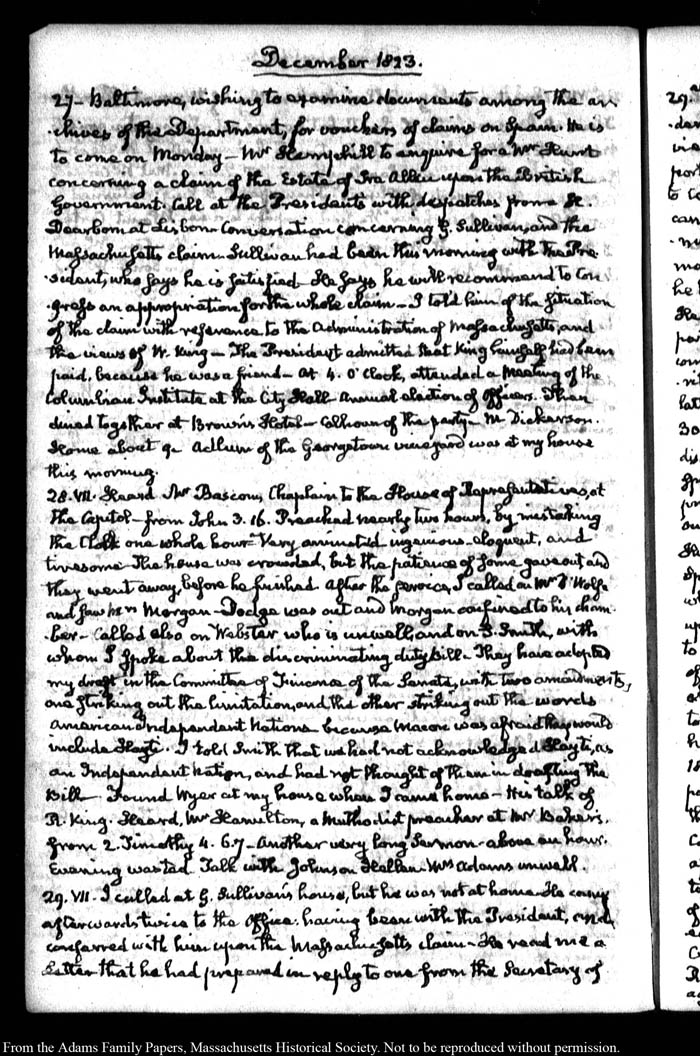 December 1823.
27- Baltimore, wishing to examine documents among the ar-
-chives of the Department, for vouchers of claims on Spain. He is
to come on Monday- Mr Hemphill to enquire for a Mr Hunt
concerning a claim of the Estate of Ira Allen upon the British
Government. Call at the Presidents with despatches from
Dearborn at Lisbon Conversation concerning G. Sullivan, and the
Massachusetts claim. Sullivan had been this morning with the Pre-
-sident, who says he is satisfied. He says he will recommend to Con-
gress an appropriation for the whole claim- I told him of the situation
of the claim with reference to the Administration of Massachusetts, and
the views of W. King- The President admitted that King himself had been
paid, because he was a friend- At 4. O'Clock, attended a Meeting of the
Columbian Institute at the City Hall Annual election of Officers. Then
dined together at Brown's Hotel- Calhoun of the party- M. Dickerson.
Home about 9- Adlum of the Georgetown vineyard was at my house
this morning.
28. VII. Heard Mr Bascom, Chaplain to the House of Representatives, at
the Capitol- from John 3. 16. Preached nearly two hours, by mistaking
the Clock one whole hour- Very animated ingenious- eloquent, and
tiresome- The house was crowded, but the patience of some gave out and
they went away, before he finished. After the service, I called on Mr D'Wolfe
and saw Mrs Morgan- Dodge was out and Morgan confined to his cham-
-ber- Called also on Webster who is unwell, and on S. Smith, with
whom I spoke about the discriminating duty bill- They have adopted
my draft in the Committee of Finance of the Senate, with two amendments,
one striking out the limitation, and the other striking out the words
American Independent Nations because Macon was afraid they would
include Hayti. I told Smith that we had not acknowledged Hayti, as
an Independent Nation, and had not thought of them in drafting the
Bill- Found Wyer at my house when I came home- His talk of
R. King- Heard, Mr Hamilton, a Methodist preacher at Mr Bakers,
from 2. Timothy 4. 6.7- Another very long Sermon- above an hour.
Evening wasted. Talk with Johnson Hellen. Mrs Adams unwell.
29. VII. I called at G. Sullivan's house, but he was not at home- He came
afterwards twice to the Office. having been with the President, and
conferred with him upon the Massachusetts claim- He read me a
Letter that he had prepared in reply to one from the Secretary of
29.
From the Adams Family Papers, Massachusetts Historical Society. Not to be reproduced without permission.